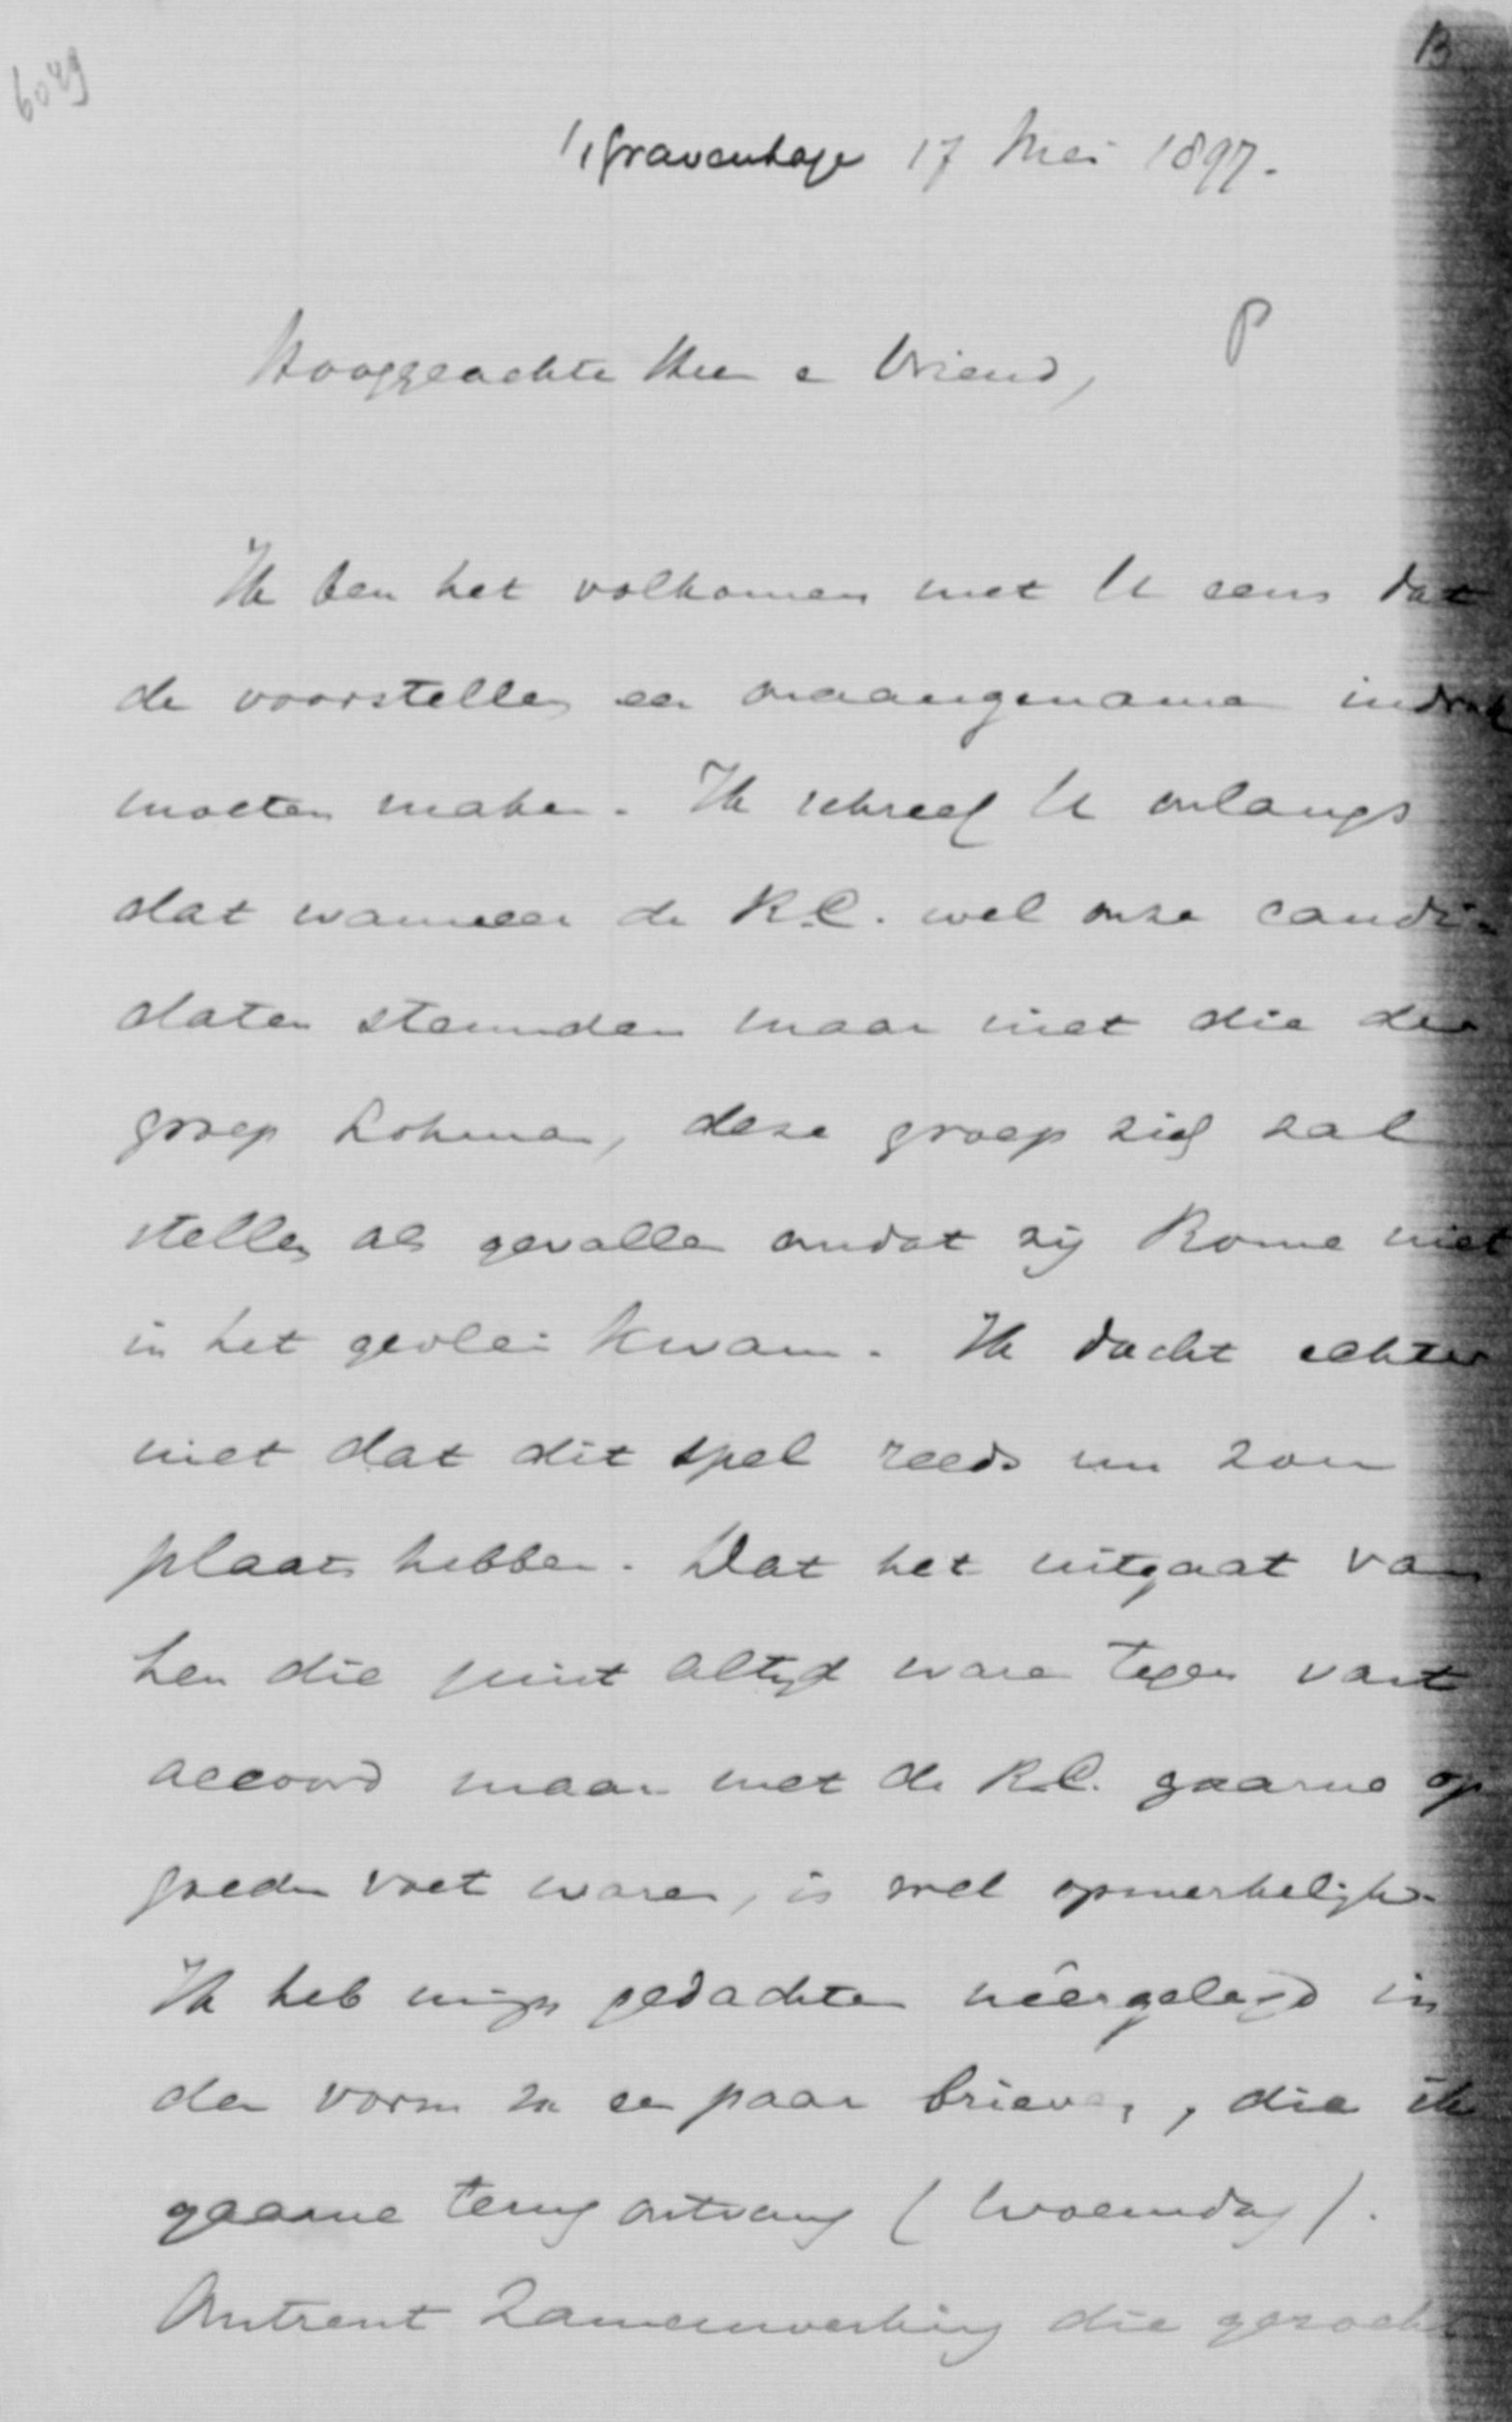 6049
B
's Gravenhage 17 Mei 1897.
P
Hooggeachte Heer e Vriend,
Ik ben het volkomen met U eens dat
de voorstellen een onaangename indruk
moeten maken. Ik schreef U onlangs
dat wanneer de R.C. wel onze candi-
daten stemden maar niet die der
groep Lohman, deze groep zich zal
stellen als gevallen omdat zij Rome niet
in het gevlei kwam. Ik dacht echter
niet dat dit spel reeds nu zou
plaats hebben. Dat het uitgaat van
hen die juist altijd waren tegen vast
accoord maar met de R.C. gaarne op
goeden voet waren, is wel opmerkelijk.
Ik heb mijn gedachten neêrgelegd in
den vorm van een paar brieven, die ik
gaarne terug ontvang (Woensdag).
Omtrent Zamenwerking die gezocht